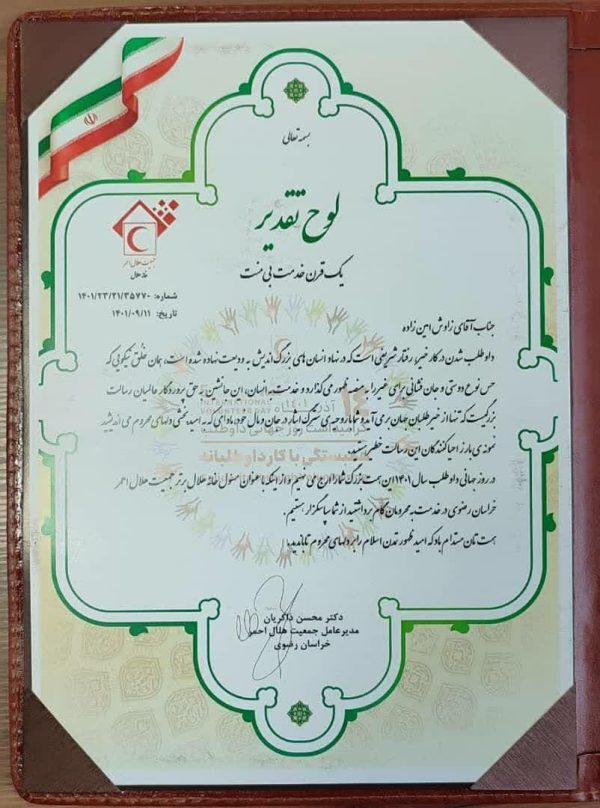 بسمه تعالی
لوح تقدیر
یک قرن خدمت بی منت
جمعیت هلال احمر
خانه هلال
شماره: ۱۴۰۱/۲۳/۲۱/۳۵۷۷۰
تاریخ: ۱۴۰۱/۰۹/۱۱
جناب آقای زاوش امین زاده
داوطلب شدن در کار خیر، رفتار شیرینی است که در نهاد انسان های بزرگ اندیش به ودیعت نهاده شده است، همان خلق نیکویی که
حس نوع دوستی و جان فشانی برای خیر را به منصه ظهور می گذارد و خدمت به انسان، این جانشین به حق پروردگار عالمیان رسالت
بزرگیست که تنها از خیر طلبان جهان بر می آید و شما با روحیه ی سترگ ایثار در جان و مال خود، یادای که به امید بخشی دلهای محروم می اندیشید
نمونه ی بارز احیا کنندگان این رسالت خطیر هستید.
در روز جهانی داوطلب سال ۱۴۰۱ این همت بزرگ شما را ارج می نهیم و از اینکه با عنوان مسئول خانه هلال برتر جمعیت هلال احمر
خراسان رضوی در خدمت به محرومان گام برداشتید از شما سپاسگزار هستیم.
همت تان مستدام باد که امید ظهور تمدن اسلام را بر دلهای محروم تاباندید.
INTERNATIONAL
VOLUNTEER DAY
۱۴ آذر ماه ۱۴۰۱
گرامیداشت روز جهانی داوطلب
همبستگی با کار داوطلبانه
دکتر محسن ذاکریان
مدیرعامل جمعیت هلال احمر
خراسان رضوی